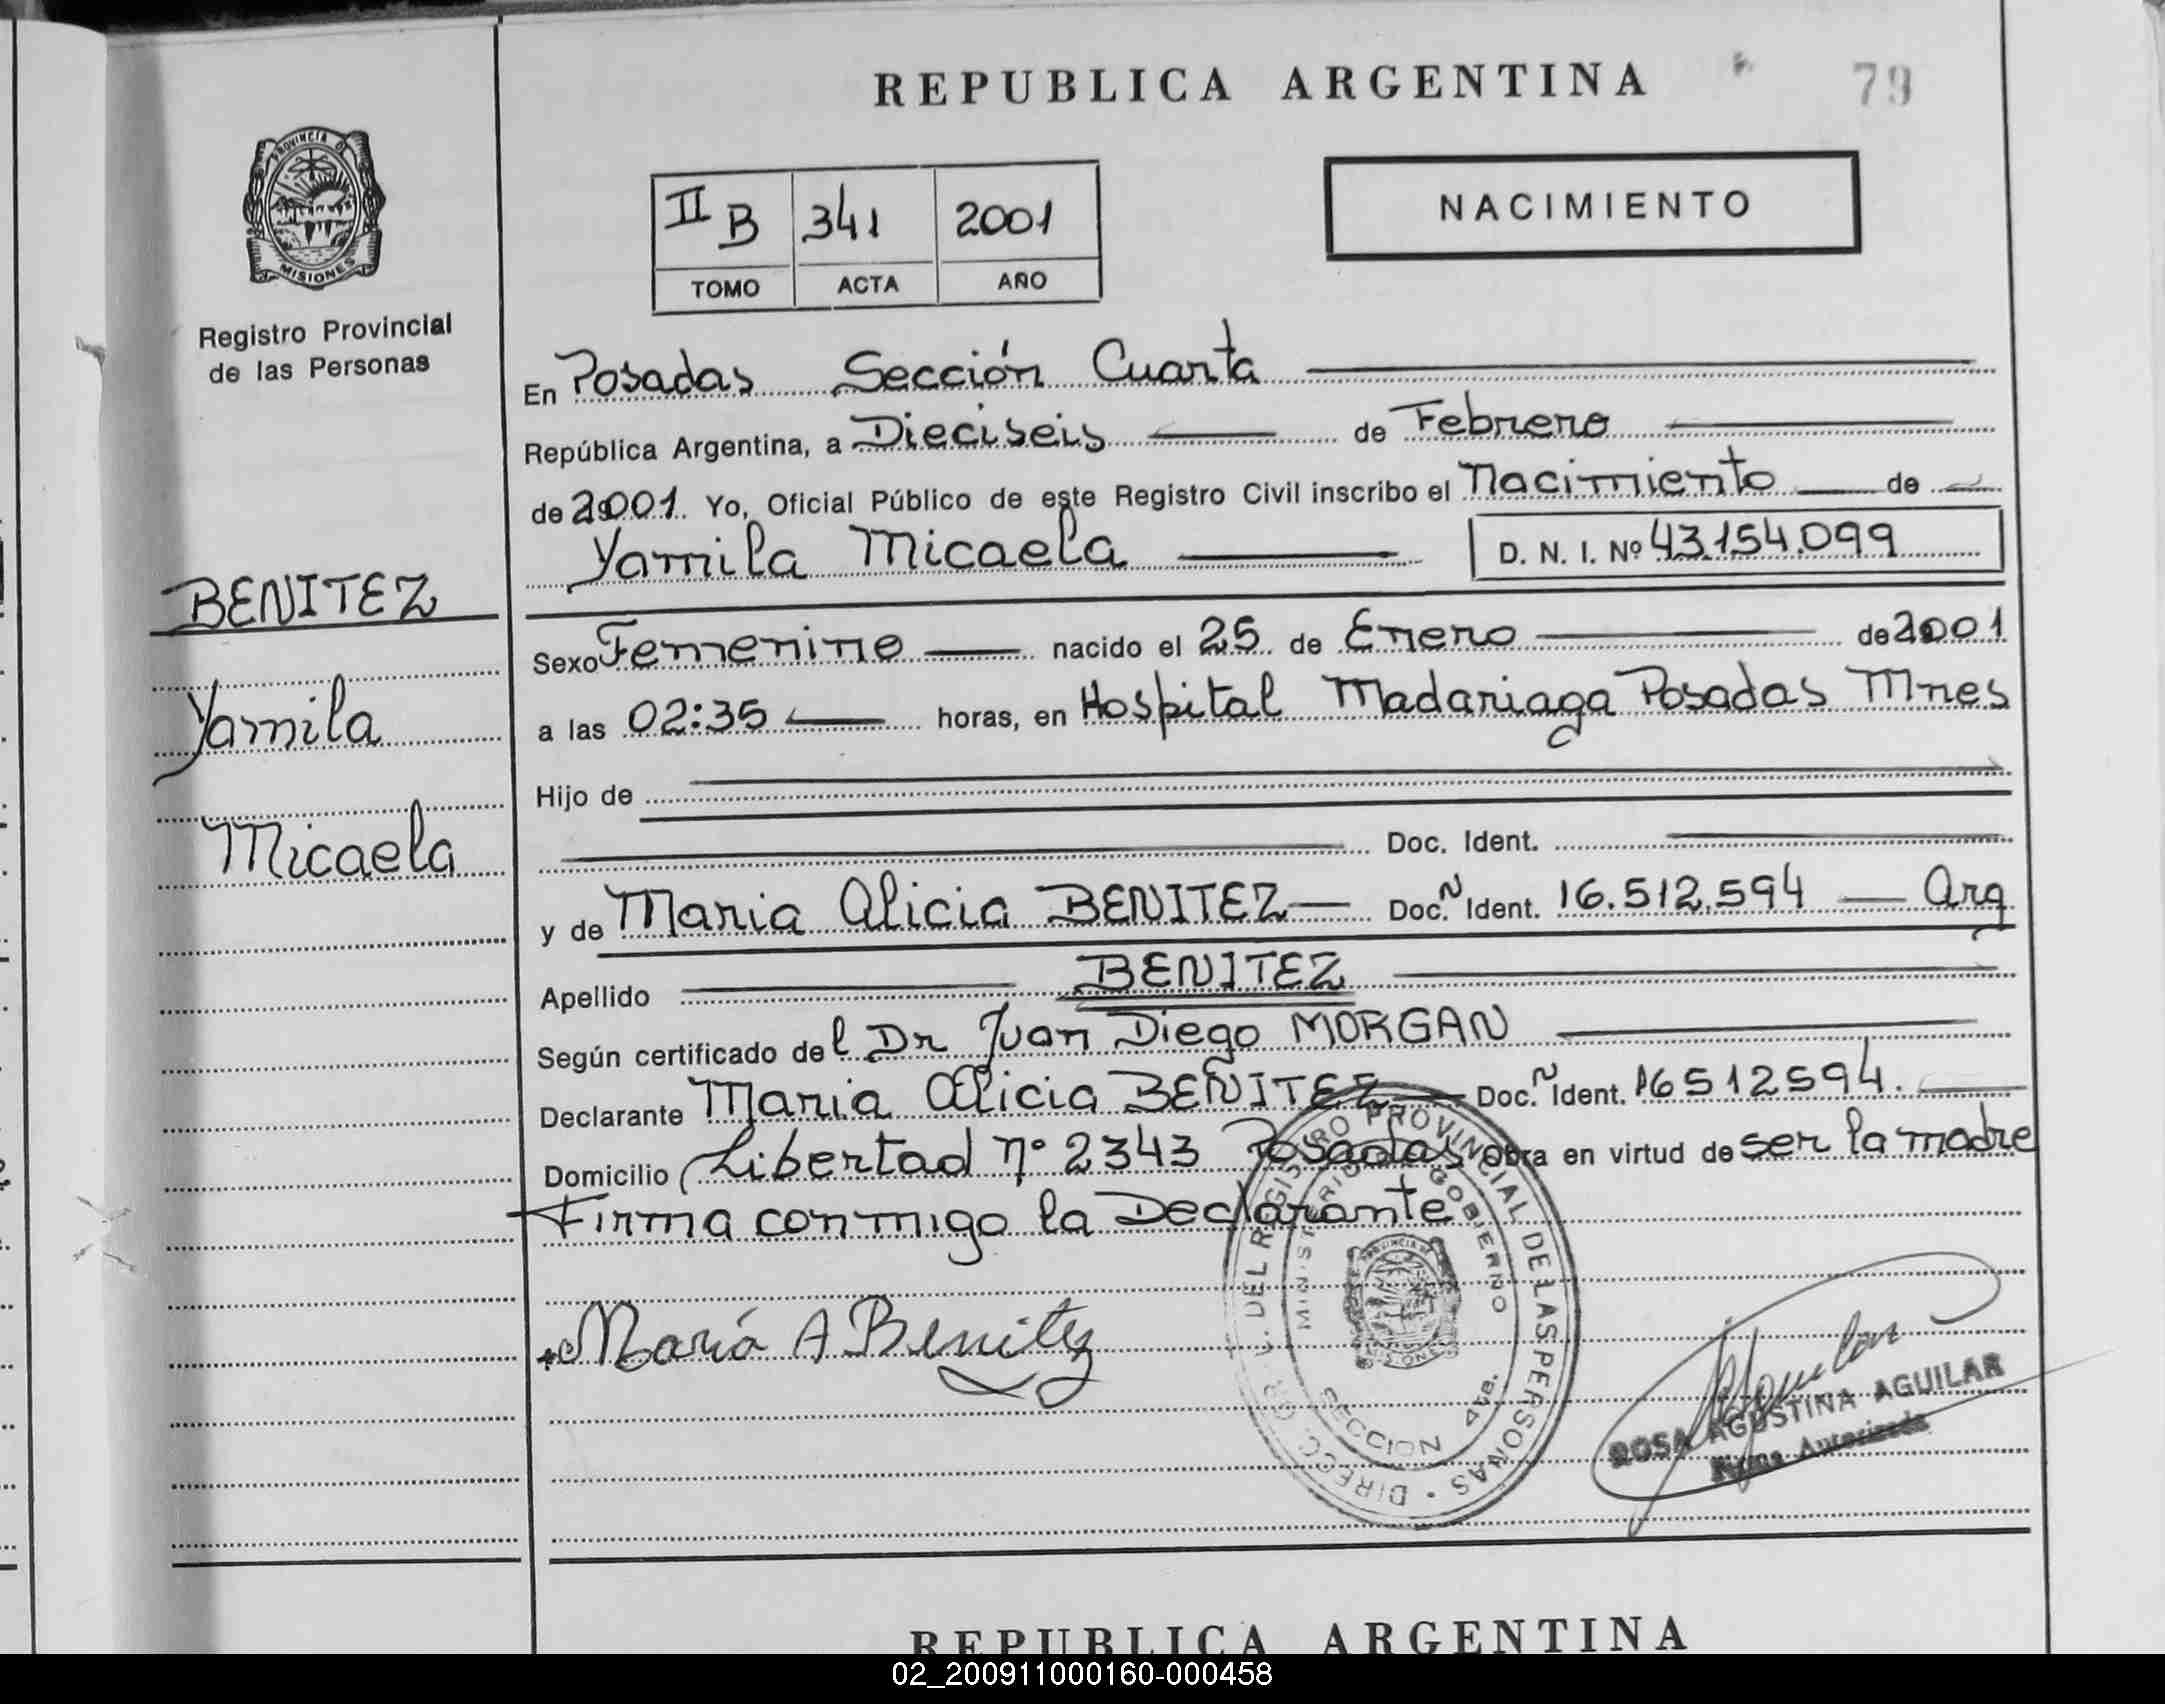 REPUBLICA ARGENTINA
79
PROVINCIA DE
MISIONES
Registro Provincial
de las Personas
II B 341 2001
TOMO ACTA AÑO
NACIMIENTO
En Posadas Sección Cuarta
República Argentina, a Dieciseis de Febrero
de 2001. Yo, Oficial Público de este Registro Civil inscribo el Nacimiento de
Yamila Micaela D. N. I. Nº 43.154.099
BENITEZ
Yamila
Micaela
Sexo Femenino nacido el 25 de Enero de 2001
a las 02:35 horas, en Hospital Madariaga Posadas Mnes
Hijo de
Doc. Ident.
y de Maria Alicia BENITEZ Doc. N Ident. 16.512.594 Arg
Apellido BENITEZ
Según certificado del Dr Juan Diego MORGAN
Declarante Maria Alicia BENITEZ Doc. N Ident. 16512594.
Domicilio Libertad Nº 2343 Posadas Obra en virtud de ser la madre
Firma conmigo la Declarante
María A Benitez
DIRECC. GRAL. DEL REGISTRO PROVINCIAL DE LAS PERSONAS
MINISTERIO DE GOBIERNO
PROVINCIA DE
MISIONES
SECCION 4ta.
ROSA AGUSTINA AGUILAR
Firma Autorizada
REPUBLICA ARGENTINA
02_200911000160-000458